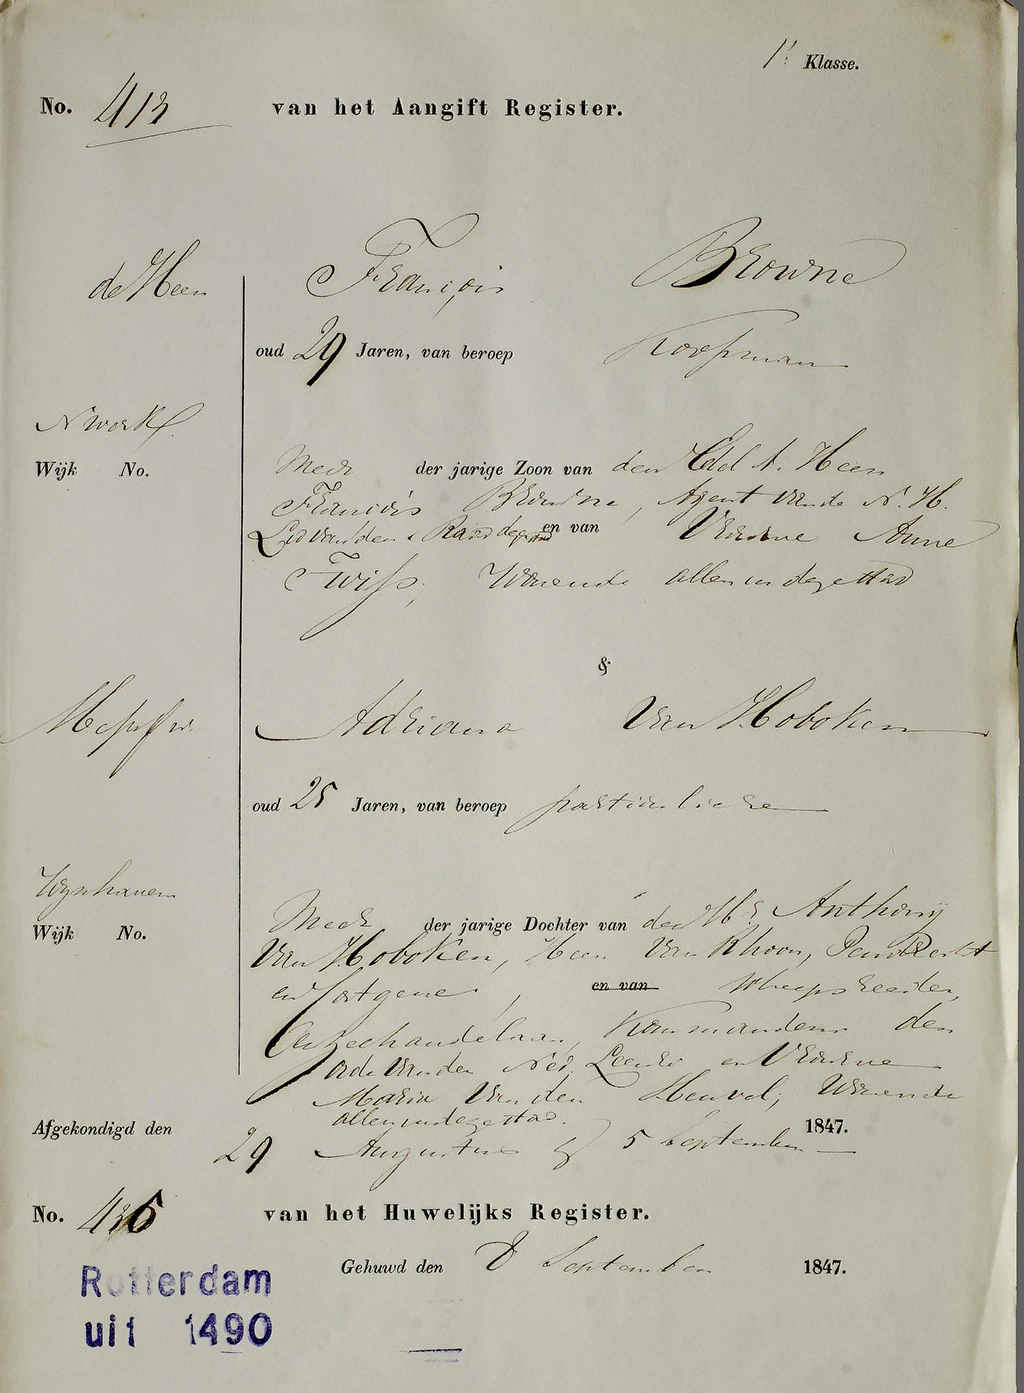 1e Klasse.
No. 413 van het Aangift Register.
de Heer François Browne
oud 29 Jaren, van beroep Koopman
Wijk No.
Meer der jarige Zoon van den Heer
François Browne, Agent van de N. H.
en van Vrouwe Anne
Twiss, Wonende allen in deze stad
&
Adriana Van Hoboken
oud 25 Jaren, van beroep particuliere
Wijnhaven
Wijk No.
Meer der jarige Dochter van den Hr. Anthony
Van Hoboken, Heer Van Rhoon, Pendrecht
en Cortgene, en van Scheepsreeder,
Kommandeur der
Orde van den Ned. Leeuw en Vrouwe
Maria Van den Heuvel, Wonende
allen in deze stad.
Afgekondigd den 29 Augustus & 5 September 1847.
No. 436 van het Huwelijks Register.
Gehuwd den 8 September 1847.
Rotterdam
uit 1490